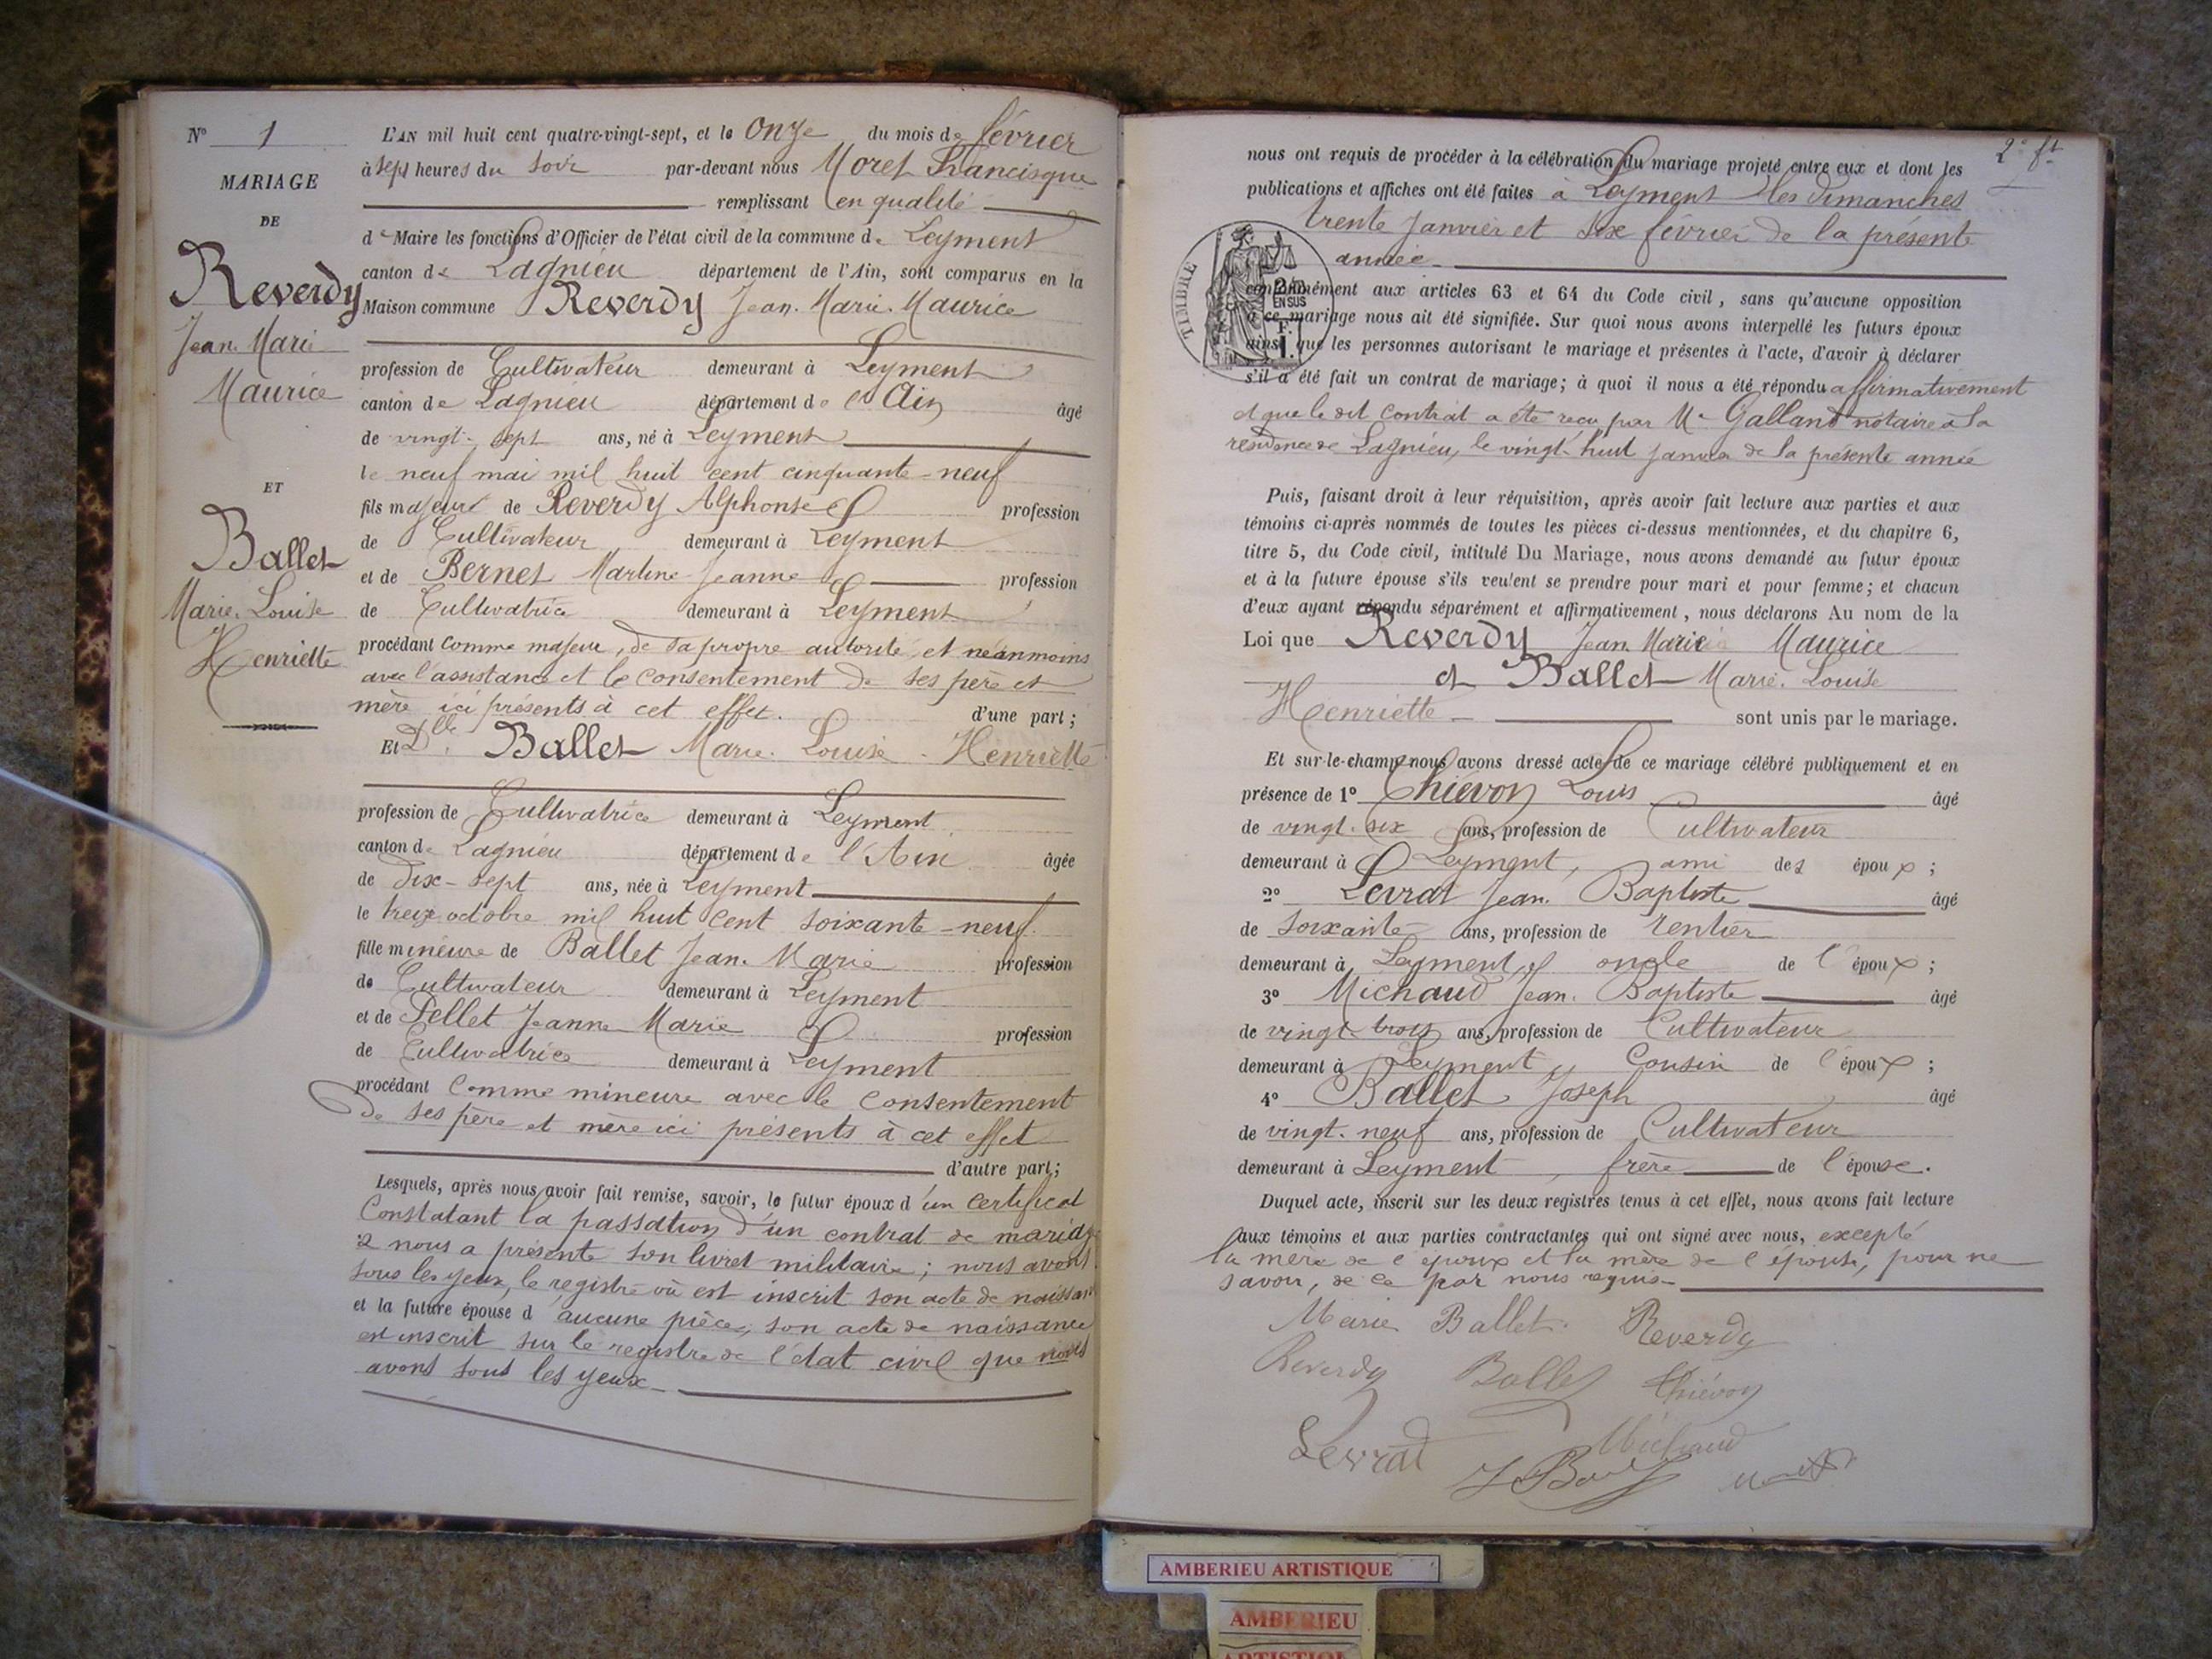 N° 1
MARIAGE
DE
Reverdy
Jean. Marie
Maurice
ET
Ballet
Marie. Louise
Henriette
L'AN mil huit cent quatre-vingt-sept, et le onze du mois de février
à sept heures du soir par-devant nous Moret Francisque
remplissant en qualité
de Maire les fonctions d'Officier de l'état civil de la commune de Leyment
canton de Lagnieu département de l'Ain, sont comparus en la
Maison commune Reverdy Jean. Marie. Maurice
profession de Cultivateur demeurant à Leyment
canton de Lagnieu département de l'Ain âgé
de vingt-sept ans, né à Leyment
le neuf mai mil huit cent cinquante-neuf
fils majeur de Reverdy Alphonse profession
de Cultivateur demeurant à Leyment
et de Bernet Martine Jeanne profession
de Cultivatrice demeurant à Leyment
procédant comme majeur, de sa propre autorité, et néanmoins
avec l'assistance et le consentement de ses père et
mère ici présents à cet effet. d'une part;
Et Dlle. Ballet Marie. Louise. Henriette
profession de Cultivatrice demeurant à Leyment
canton de Lagnieu département de l'Ain âgée
de dix-sept ans, née à Leyment
le treize octobre mil huit cent soixante-neuf
fille mineure de Ballet Jean. Marie profession
de Cultivateur demeurant à Leyment
et de Pellet Jeanne Marie profession
de Cultivatrice demeurant à Leyment
procédant comme mineure avec le consentement
de ses père et mère ici présents à cet effet
d'autre part;
Lesquels, après nous avoir fait remise, savoir, le futur époux d'un certificat
constatant la passation d'un contrat de mariage
nous a présenté son livret militaire; nous avons
sous les yeux, le registre où est inscrit son acte de naissance
et la future épouse d'aucune pièce, son acte de naissance
est inscrit sur le registre de l'état civil que nous
avons sous les yeux
2e ft
nous ont requis de procéder à la célébration du mariage projeté entre eux et dont les
publications et affiches ont été faites à Leyment les dimanches
trente Janvier et six février de la présente
année
TIMBRE
EN SUS
conformément aux articles 63 et 64 du Code civil, sans qu'aucune opposition
à ce mariage nous ait été signifiée. Sur quoi nous avons interpellé les futurs époux
ainsi que les personnes autorisant le mariage et présentes à l'acte, d'avoir à déclarer
s'il a été fait un contrat de mariage; à quoi il nous a été répondu affirmativement
et que le dit contrat a été reçu par Me Galland notaire à la
résidence de Lagnieu, le vingt-huit janvier de la présente année
Puis, faisant droit à leur réquisition, après avoir fait lecture aux parties et aux
témoins ci-après nommés de toutes les pièces ci-dessus mentionnées, et du chapitre 6,
titre 5, du Code civil, intitulé Du Mariage, nous avons demandé au futur époux
et à la future épouse s'ils veulent se prendre pour mari et pour femme; et chacun
d'eux ayant répondu séparément et affirmativement, nous déclarons Au nom de la
Loi que Reverdy Jean Marie Maurice
et Ballet Marie. Louise
Henriette sont unis par le mariage.
Et sur-le-champ nous avons dressé acte de ce mariage célébré publiquement et en
présence de 1° Thiévon Louis âgé
de vingt-six ans, profession de Cultivateur
demeurant à Leyment, ami des époux;
2° Levrat Jean. Baptiste âgé
de soixante ans, profession de rentier
demeurant à Leyment, oncle de l'époux;
3° Michaud Jean. Baptiste âgé
de vingt-trois ans, profession de Cultivateur
demeurant à Leyment, Cousin de l'époux;
4° Ballet Joseph âgé
de vingt-neuf ans, profession de Cultivateur
demeurant à Leyment, frère de l'épouse.
Duquel acte, inscrit sur les deux registres tenus à cet effet, nous avons fait lecture
aux témoins et aux parties contractantes qui ont signé avec nous, excepté
la mère de l'époux et la mère de l'épouse, pour ne
savoir, de ce par nous requis
Marie Ballet. Reverdy
Reverdy Ballet Thiévon
Levrat Michaud
AMBERIEU ARTISTIQUE
AMBERIEU
ARTISTIQUE